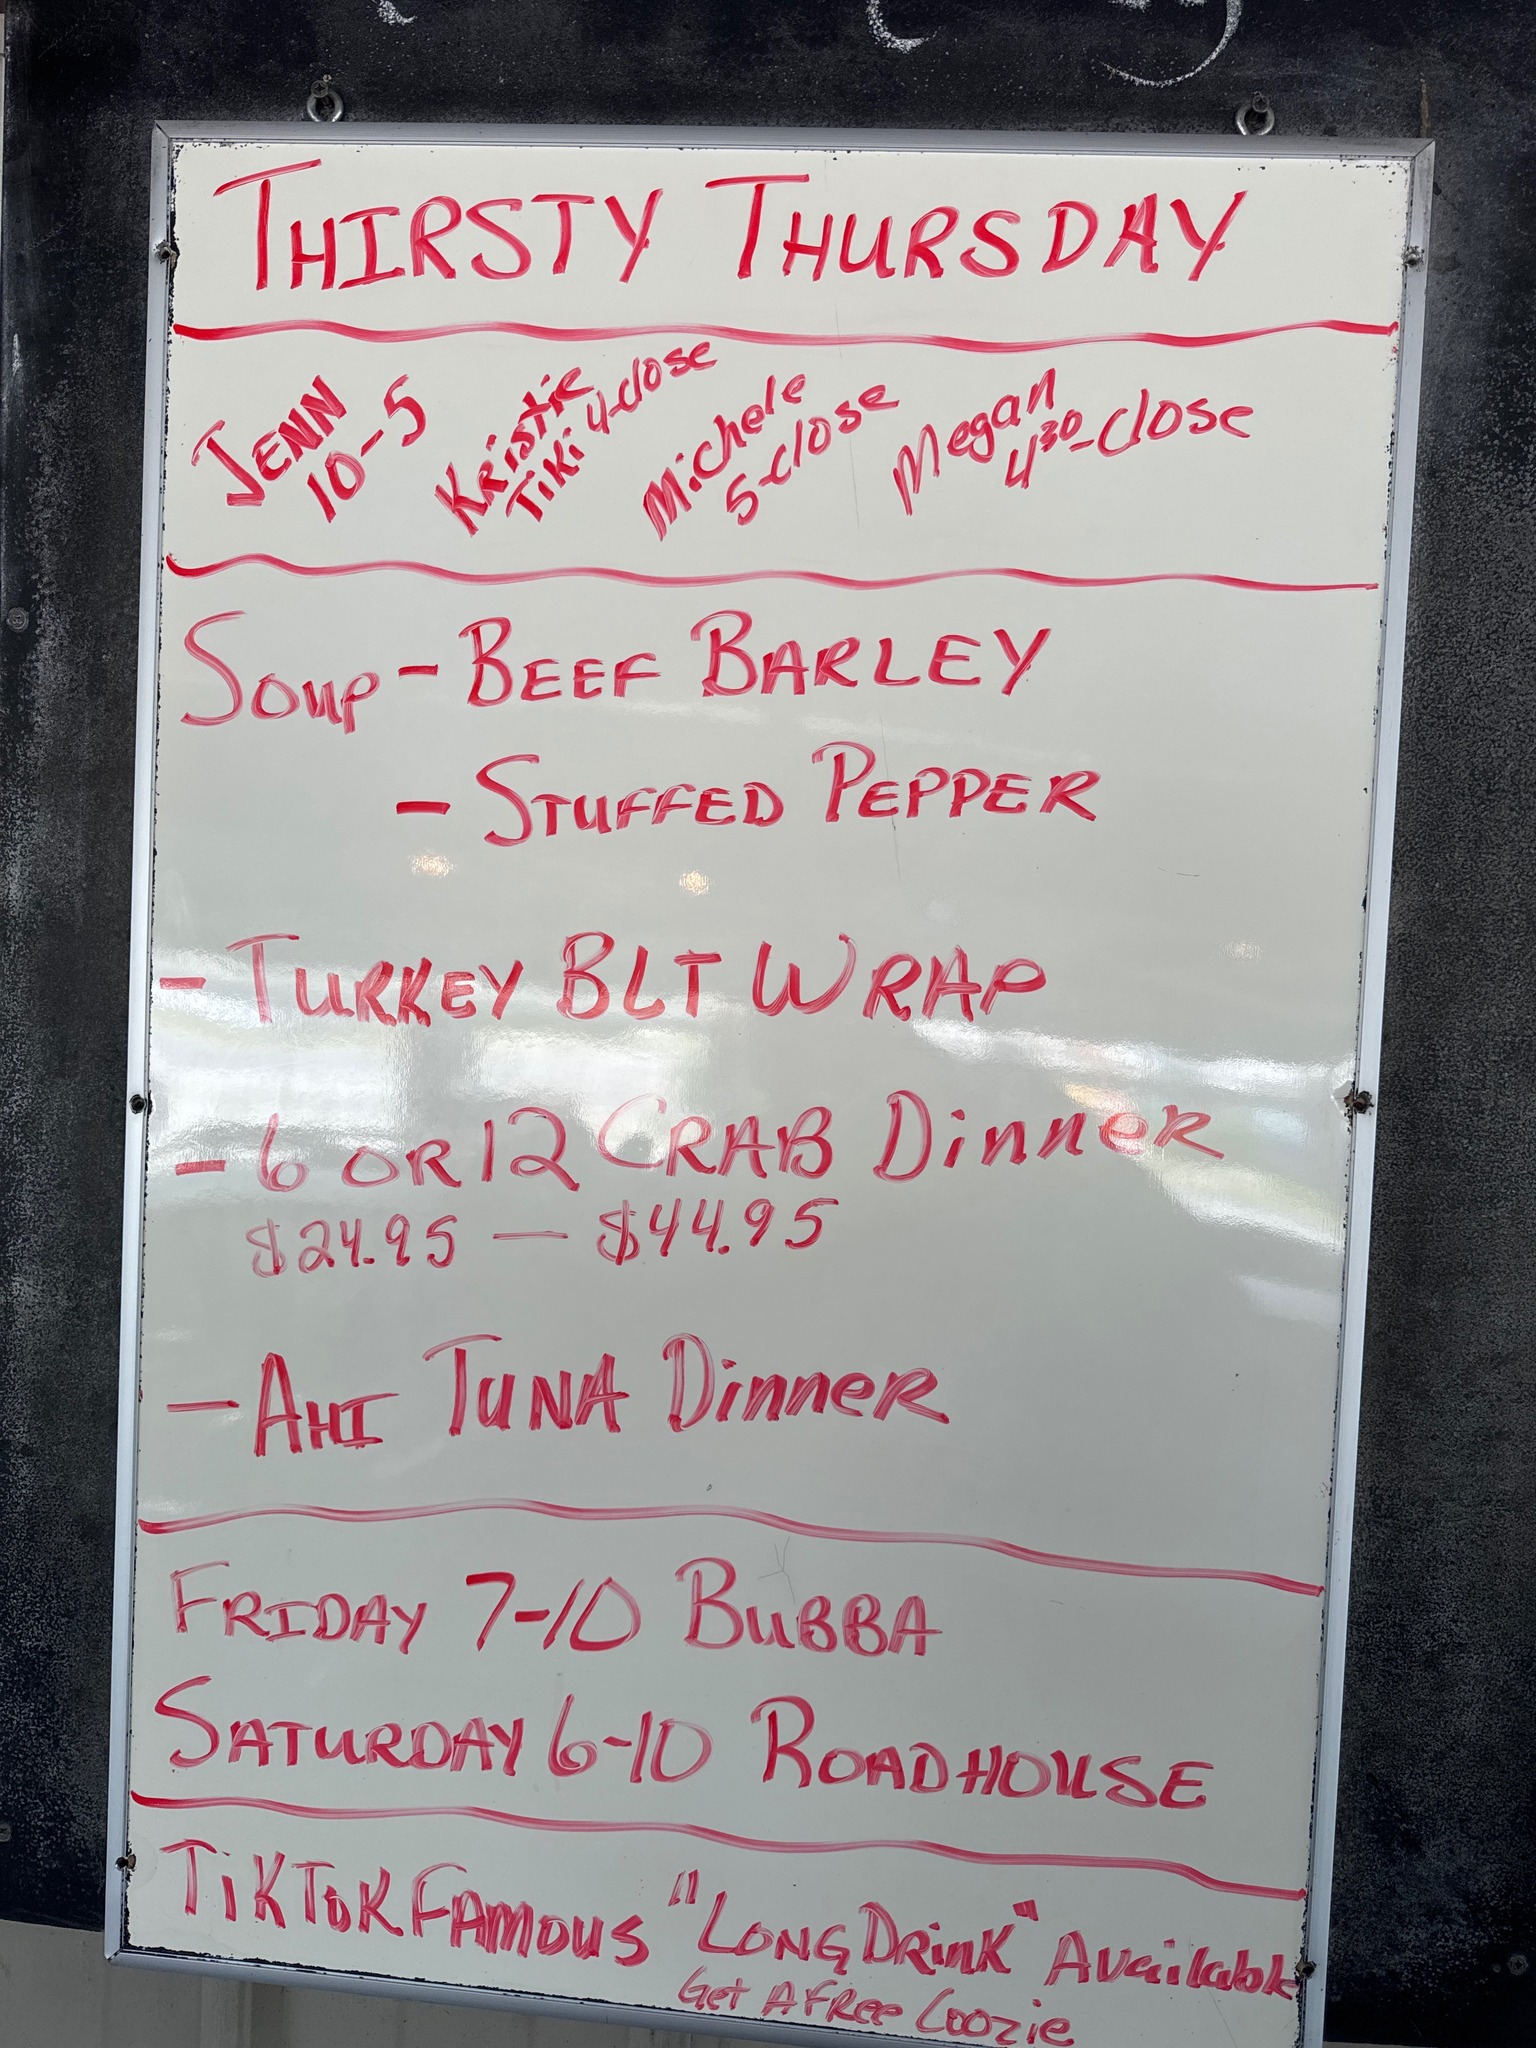 THIRSTY THURSDAY
JENN
10-5
Kristie
Tiki 4-close
Michele
5-close
Megan
4³⁰-close
SOUP - BEEF BARLEY
- STUFFED PEPPER
- TURKEY BLT WRAP
- 6 OR 12 CRAB DinneR
$24.95 — $44.95
- AHI TUNA DinneR
FRIDAY 7-10 BUBBA
SATURDAY 6-10 ROADHOUSE
TiKTOK FAMOUS "LONG DRinK" Available
Get A Free Coozie